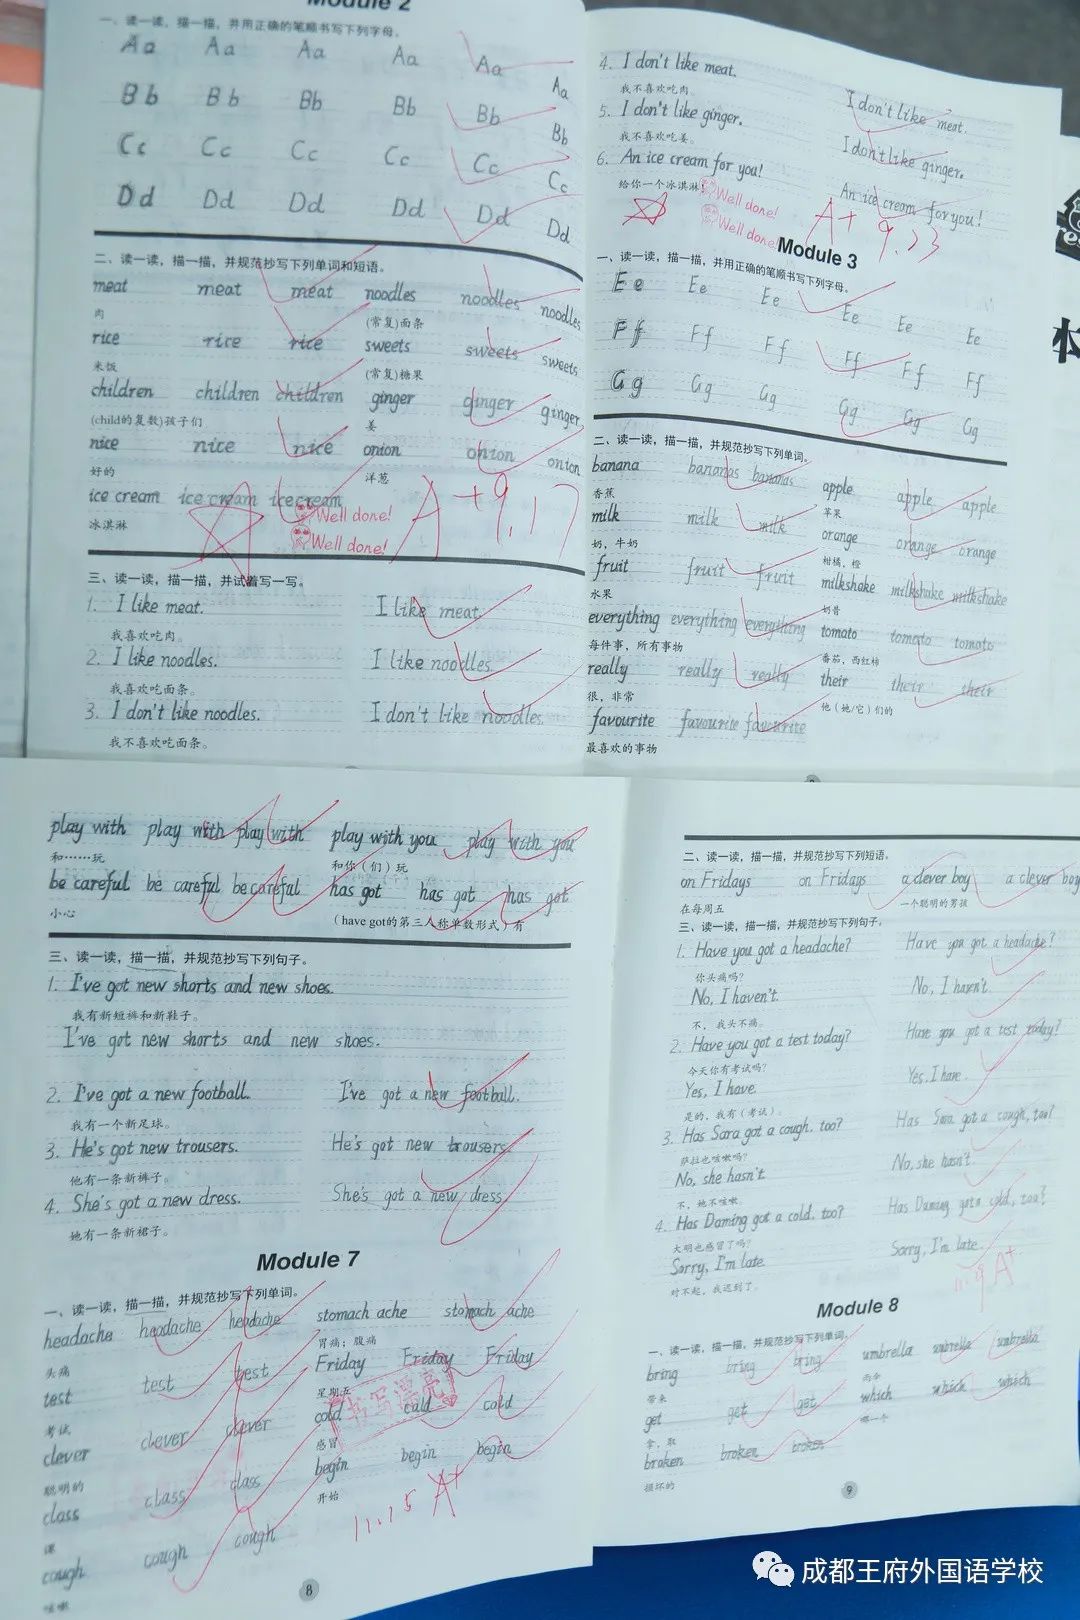 Module 2
一、读一读，描一描，并用正确的笔顺书写下列字母。
Aa Aa Aa Aa Aa Aa
Bb Bb Bb Bb Bb Bb
Cc Cc Cc Cc Cc Cc
Dd Dd Dd Dd Dd Dd
二、读一读，描一描，并规范抄写下列单词和短语。
meat meat meat noodles noodles noodles
肉 (常复)面条
rice rice rice sweets sweets sweets
米饭 (常复)糖果
children children children ginger ginger ginger
(child的复数)孩子们 姜
nice nice nice onion onion onion
好的 洋葱
ice cream ice cream ice cream
冰淇淋
Well done!
Well done!
A+ 9.17
三、读一读，描一描，并试着写一写。
1. I like meat. I like meat.
我喜欢吃肉。
2. I like noodles. I like noodles.
我喜欢吃面条。
3. I don't like noodles. I don't like noodles.
我不喜欢吃面条。
4. I don't like meat. I don't like meat.
我不喜欢吃肉。
5. I don't like ginger. I don't like ginger.
我不喜欢吃姜。
6. An ice cream for you! An ice cream for you!
给你一个冰淇淋!
Well done!
Well done!
A+ 9.23
Module 3
一、读一读，描一描，并用正确的笔顺书写下列字母。
Ee Ee Ee Ee Ee Ee
Ff Ff Ff Ff Ff Ff
Gg Gg Gg Gg Gg Gg
二、读一读，描一描，并规范抄写下列单词。
banana bananas bananas apple apple apple
香蕉 苹果
milk milk milk orange orange orange
奶，牛奶 柑橘，橙
fruit fruit fruit milkshake milkshake milkshake
水果 奶昔
everything everything everything tomato tomato tomato
每件事，所有事物 番茄，西红柿
really really really their their their
很，非常 他（她/它）们的
favourite favourite favourite
最喜欢的事物
play with play with play with play with you play with you
和……玩 和你（们）玩
be careful be careful be careful has got has got has got
小心 （have got的第三人称单数形式）有
三、读一读，描一描，并规范抄写下列句子。
1. I've got new shorts and new shoes.
我有新短裤和新鞋子。
I've got new shorts and new shoes.
2. I've got a new football. I've got a new football.
我有一个新足球。
3. He's got new trousers. He's got new trousers.
他有一条新裤子。
4. She's got a new dress. She's got a new dress.
她有一条新裙子。
Module 7
一、读一读，描一描，并规范抄写下列单词。
headache headache headache stomach ache stomach ache
头痛 胃痛；腹痛
test test test Friday Friday Friday
考试 星期五
clever clever clever cold cold cold
聪明的 感冒
class class class begin begin begin
课 开始
cough cough cough
咳嗽
书写漂亮
11.15 A+
8
二、读一读，描一描，并规范抄写下列短语。
on Fridays on Fridays a clever boy a clever boy
在每周五 一个聪明的男孩
三、读一读，描一描，并规范抄写下列句子。
1. Have you got a headache? Have you got a headache?
你头痛吗?
No, I haven't. No, I haven't.
不，我头不痛。
2. Have you got a test today? Have you got a test today?
今天你有考试吗?
Yes, I have. Yes, I have.
是的，我有（考试）。
3. Has Sara got a cough, too? Has Sara got a cough, too?
萨拉也咳嗽吗?
No, she hasn't. No, she hasn't.
不，她不咳嗽。
4. Has Daming got a cold, too? Has Daming got a cold, too?
大明也感冒了吗?
Sorry, I'm late. Sorry, I'm late.
对不起，我迟到了。
A+
Module 8
一、读一读，描一描，并规范抄写下列单词。
bring bring bring umbrella umbrella umbrella
带来 雨伞
get get get which which which
拿，取 哪一个
broken broken broken
损坏的
9
成都王府外国语学校